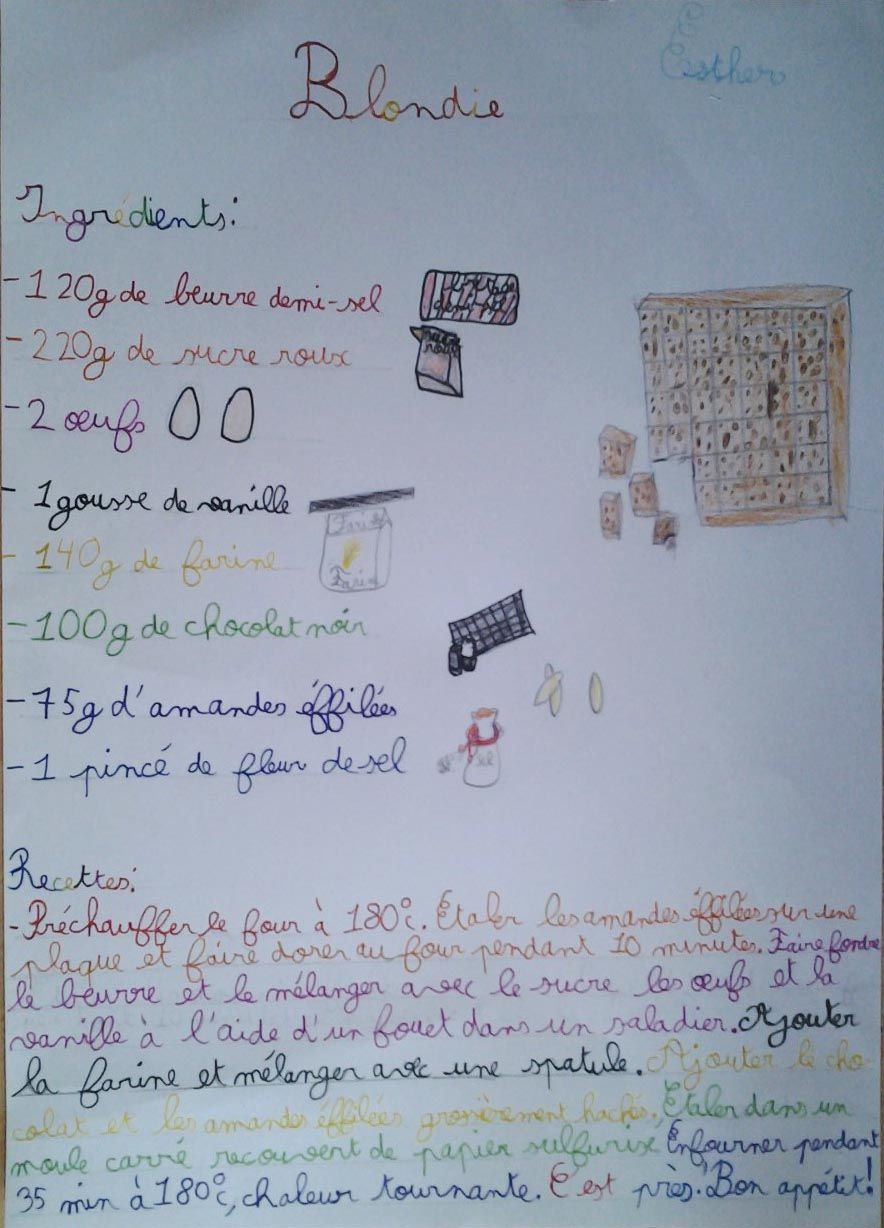 Esther
Blondie
Ingrédients:
-120g de beurre demi-sel
-220g de sucre roux
-2 œufs
-1 gousse de vanille
Farine
Farine
-140g de farine
-100g de chocolat noir
-75g d'amandes éffilées
-1 pincé de fleur de sel
sel
Recettes:
-Préchauffer le four à 180°c. Étaler les amandes éffilées sur une
plaque et faire dorer au four pendant 10 minutes. Faire fondre
le beurre et le mélanger avec le sucre les œufs et la
vanille à l'aide d'un fouet dans un saladier. Ajouter
la farine et mélanger avec une spatule. Ajouter le cho-
colat et les amandes éffilées grossièrement hachés, Étaler dans un
moule carré recouvert de papier sulfurisé Enfourner pendant
35 min à 180°c, chaleur tournante. C'est près. Bon appétit!